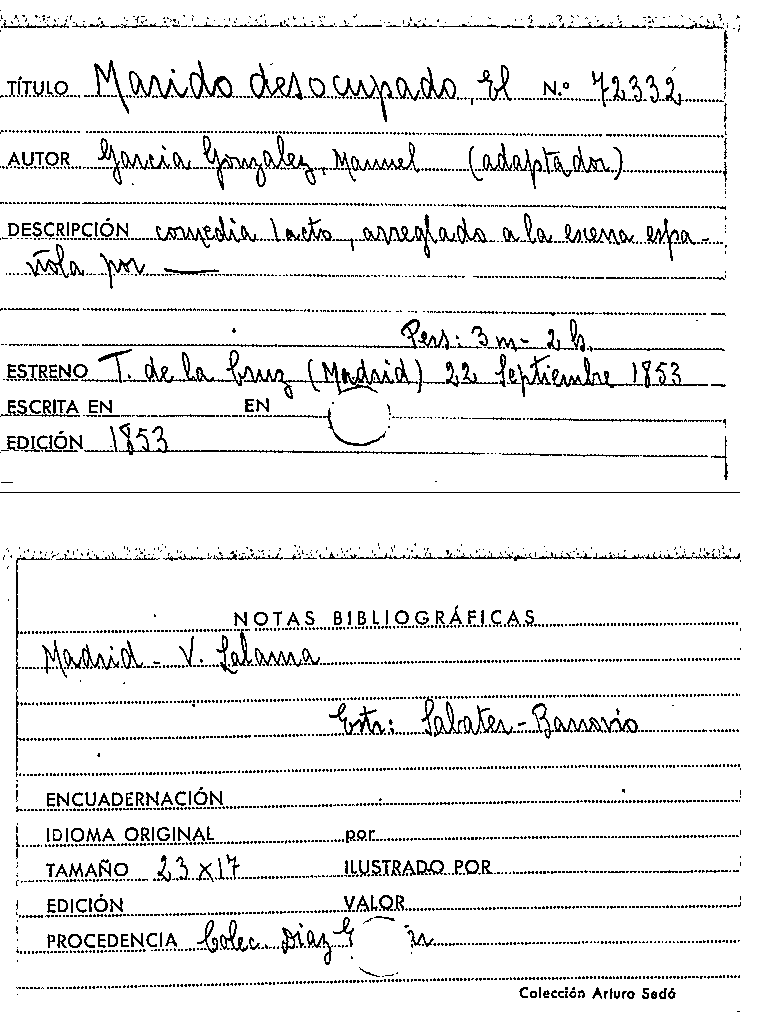 TÍTULO Marido desocupado, El N.º 72332
AUTOR García Gonzalez, Manuel (adaptador)
DESCRIPCIÓN comedia 1 acto, arreglado a la escena espa-
ñola por —
Pers: 3 m - 2 h.
ESTRENO T. de la Cruz (Madrid) 22 Septiembre 1853
ESCRITA EN EN
EDICIÓN 1853
NOTAS BIBLIOGRÁFICAS
Madrid - V. Lalama
Estr: Sabater - Barrovio
ENCUADERNACIÓN
IDIOMA ORIGINAL por
TAMAÑO 23 x 17 ILUSTRADO POR
EDICIÓN VALOR
PROCEDENCIA Colec. Díaz
Colección Arturo Sedó